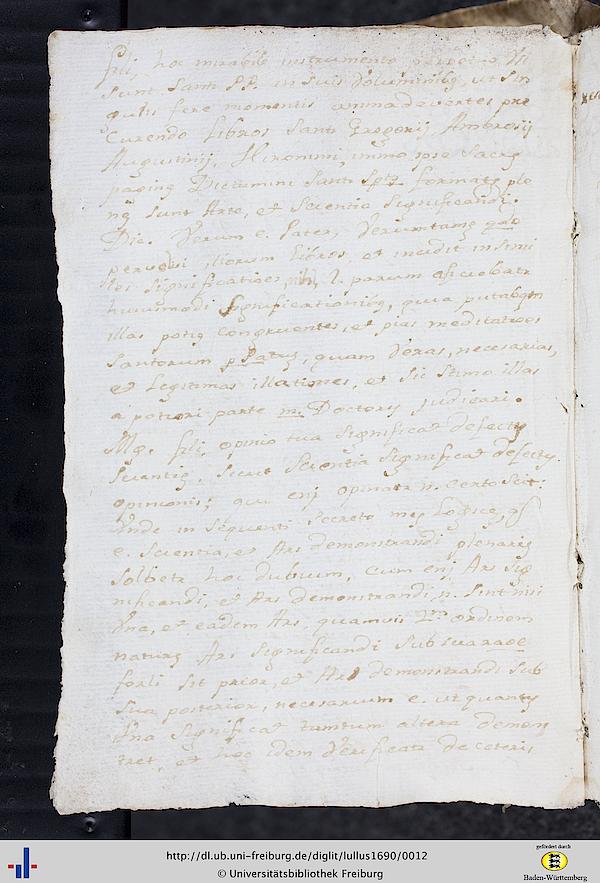 fili, hoc mirabile instrumento
sunt Santi PP. in suis Voluminibq, ut sin
gulis fere momentis animadvertes pre
Currendo Libros Santi Gregorij, Ambrosij
Augustinij, Hironimi, immo ipse Sacrę
paginę Dictamini Santi formatę ple
nę sunt Arte, et Scientia Significandi.
Dic. Verum e. Pater,
illorum Libros, et incidit in simi
les significatioēs, l. parum
huiusmodi Significationibq, quia putabam
illas potiq congruentes, et pias meditatioēs
Santorum Patrū, quam Veras, necesarias,
et Legitimas illationes, et Sic Stimo illas
a potiori parte m. Doctorū judicari.
Mg. fili, opinio tua Significat defectū
Scientię, Sicut Scientia Significat defectū
opinionis; qui enj opinatr n. certo Scit.
Unde in Sequenti Secreto meę Logicę, qd
e. Scientia, et Ars demonstrandi plenarię
Solbetr hoc dubium, Cum enj Ars Sig
nificandi, et Ars demonstrandi, n. Sint nisi
Vna, et eadem Ars, quamvis 2m ordinem
naturę Ars Significandi Sub sua raoē
forli sit prior, et Ars demonstrandi Sub
Sua posterior, necesarium e. ut quantū
Vna Significat tantum altera demon
tret, et hoc idem Verificatr de ceteris
http://dl.ub.uni-freiburg.de/diglit/lullus1690/0012
© Universitätsbibliothek Freiburg
gefördert durch
Baden-Württemberg